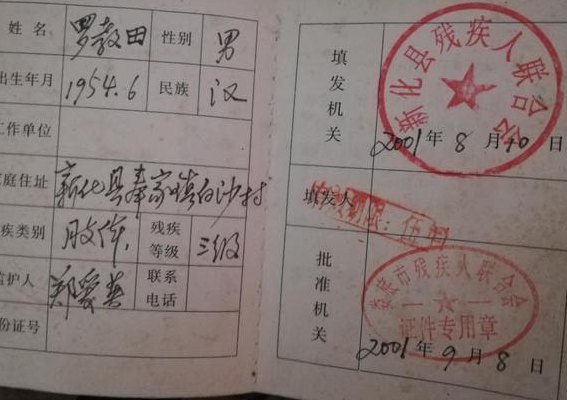 姓名 罗教田 性别 男
出生年月 1954.6 民族 汉
工作单位
家庭住址 新化县奉家镇白沙村
残疾类别 肢体 残疾等级 三级
监护人 郑爱英 联系电话
身份证号
填发机关
新化县残疾人联合会
2001年8月10日
填发人
批准机关
娄底市残疾人联合会
证件专用章
2001年9月8日